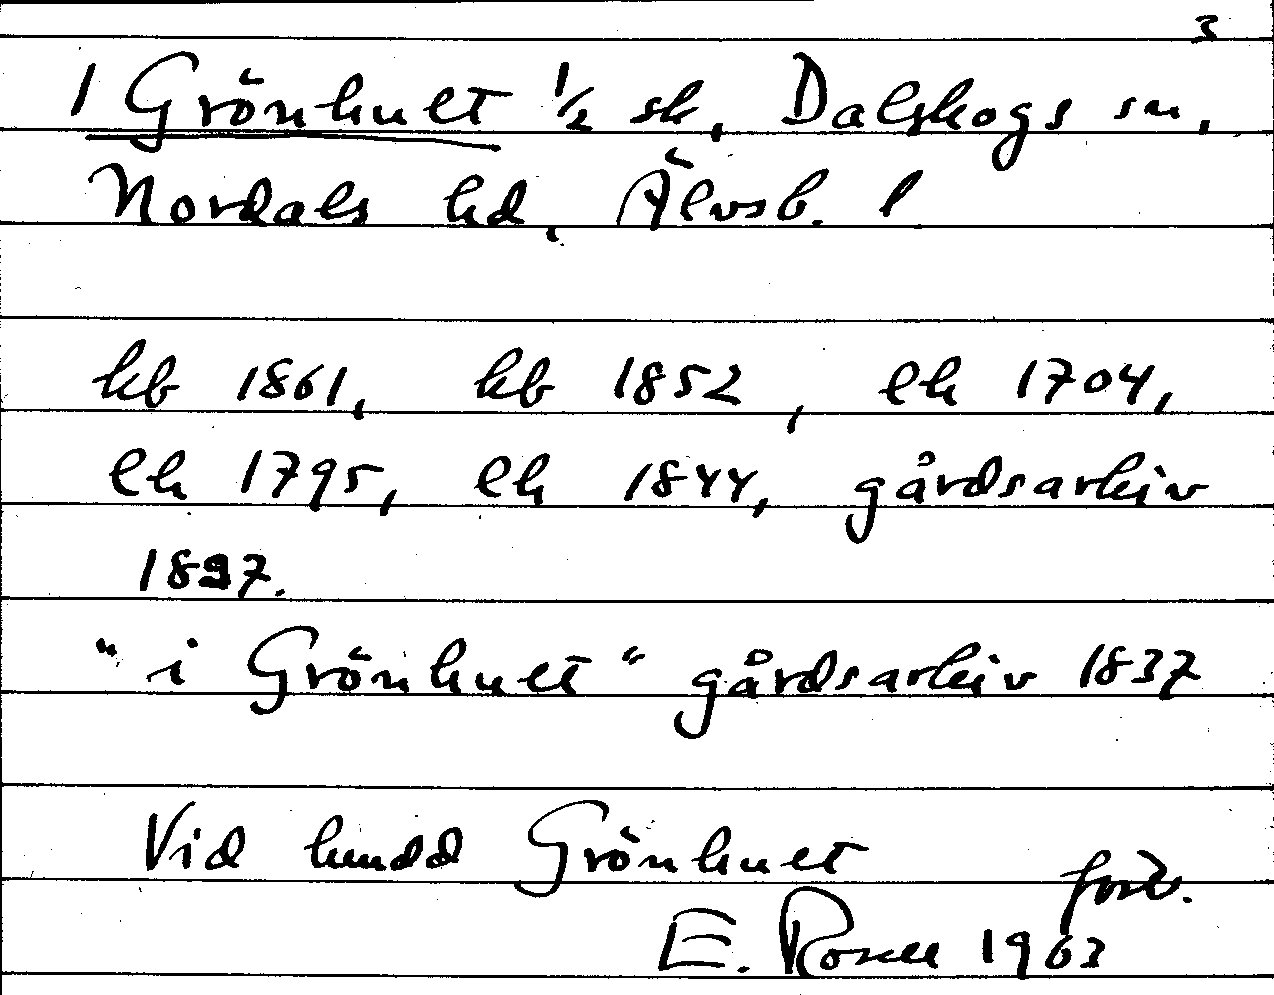 3
1 Grönhult 1/2 sk, Dalskogs sn,
Nordals hd, Älvsb. l
kb 1861, kb 1852, ek 1704,
ek 1795, ek 1844, gårdsarkiv
1897.
"i Grönhult" gårdsarkiv 1837
Vid Grönhult
forts.
E. Rosell 1963